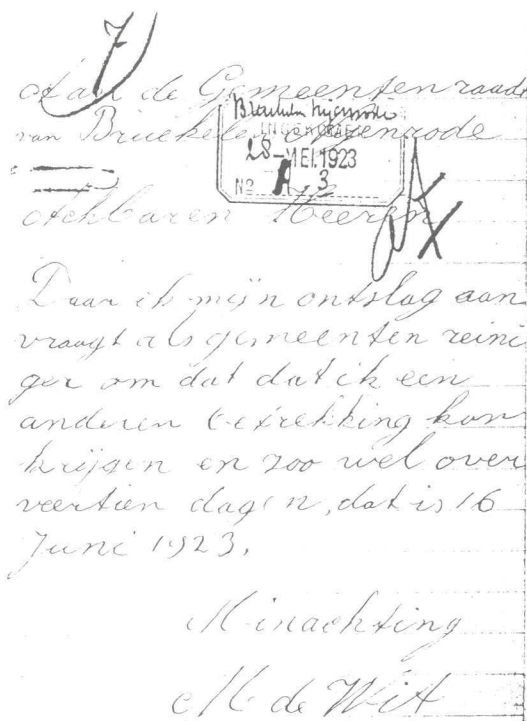 7
Aan de Gemeentenraade
van Bruekelen Nijenrode
Breukelen Nijenrode
INGEKOMEN
28-MEI.1923
No A 3
Achbaren Heeren
Daar ik mijn ontslag aan
vraagt als gemeenten reini
ger om dat dat ik een
anderen betrekking kan
krijgen en zoo wel over
veertien dagen, dat is 16
Juni 1923.
Minachting
M de Wit